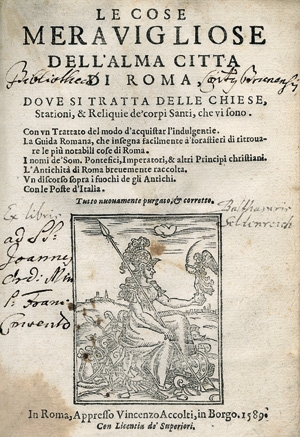 LE COSE
MERAVIGLIOSE
DELL'ALMA CITTA
DI ROMA.
Bibliotheca
DOVE SI TRATTA DELLE CHIESE,
Stationi, & Reliquie de' corpi Santi, che vi sono.
Con vn Trattato del modo d'acquistar l'indulgentie.
La Guida Romana, che insegna facilmente a' forastieri di titrouare
le più notabili cose di Roma.
I nomi de' Som. Pontefici, Imperatori, & altri Principi christiani.
L'Antichità di Roma breuemente raccolta.
Vn discorso sopra i fuochi de gli Antichi.
Con le Poste d'Italia.
Tutto nuouamente purgato, & corretto.
Ex libris
ad SS.
Joannem
Conuento
In Roma, Appresso Vincenzo Accolti, in Borgo. 1589.
Con Licentia de' Superiori.